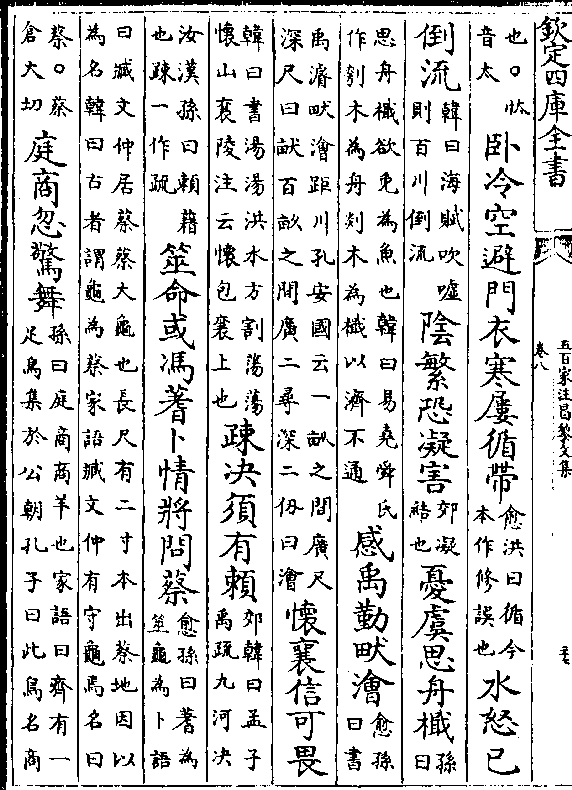 欽定四庫全書
五百家注昌黎文集
卷八
也○忕
音太
卧冷空避門衣寒屢循帶
愈洪曰循今
本作修誤也
水怒已
倒流
韓曰海賦吹噓
則百川倒流
陰繁恐凝害
郊凝
結也
憂虞思舟檝
孫曰
思舟檝欲免為魚也韓曰易堯舜氏
作刳木為舟剡木為檝以濟不通
感禹勤畎澮
愈孫
曰書
禹濬畎澮距川孔安國云一畝之間廣尺
深尺曰畎百畝之間廣二尋深二仞曰澮
懷襄信可畏
韓曰書湯湯洪水方割蕩蕩
懷山襄陵注云懷包襄上也
疎决須有賴
郊韓曰孟子
禹疏九河决
汝漢孫曰賴藉
也疎一作疏
筮命或馮蓍卜情將問蔡
愈孫曰蓍為
筮龜為卜語
曰臧文仲居蔡蔡大龜也長尺有二寸本出蔡地因以
為名韓曰古者謂龜為蔡家語臧文仲有守龜焉名曰
蔡○蔡
倉大切
庭商忽驚舞
孫曰庭商商羊也家語曰齊有一
足鳥集於公朝孔子曰此鳥名商